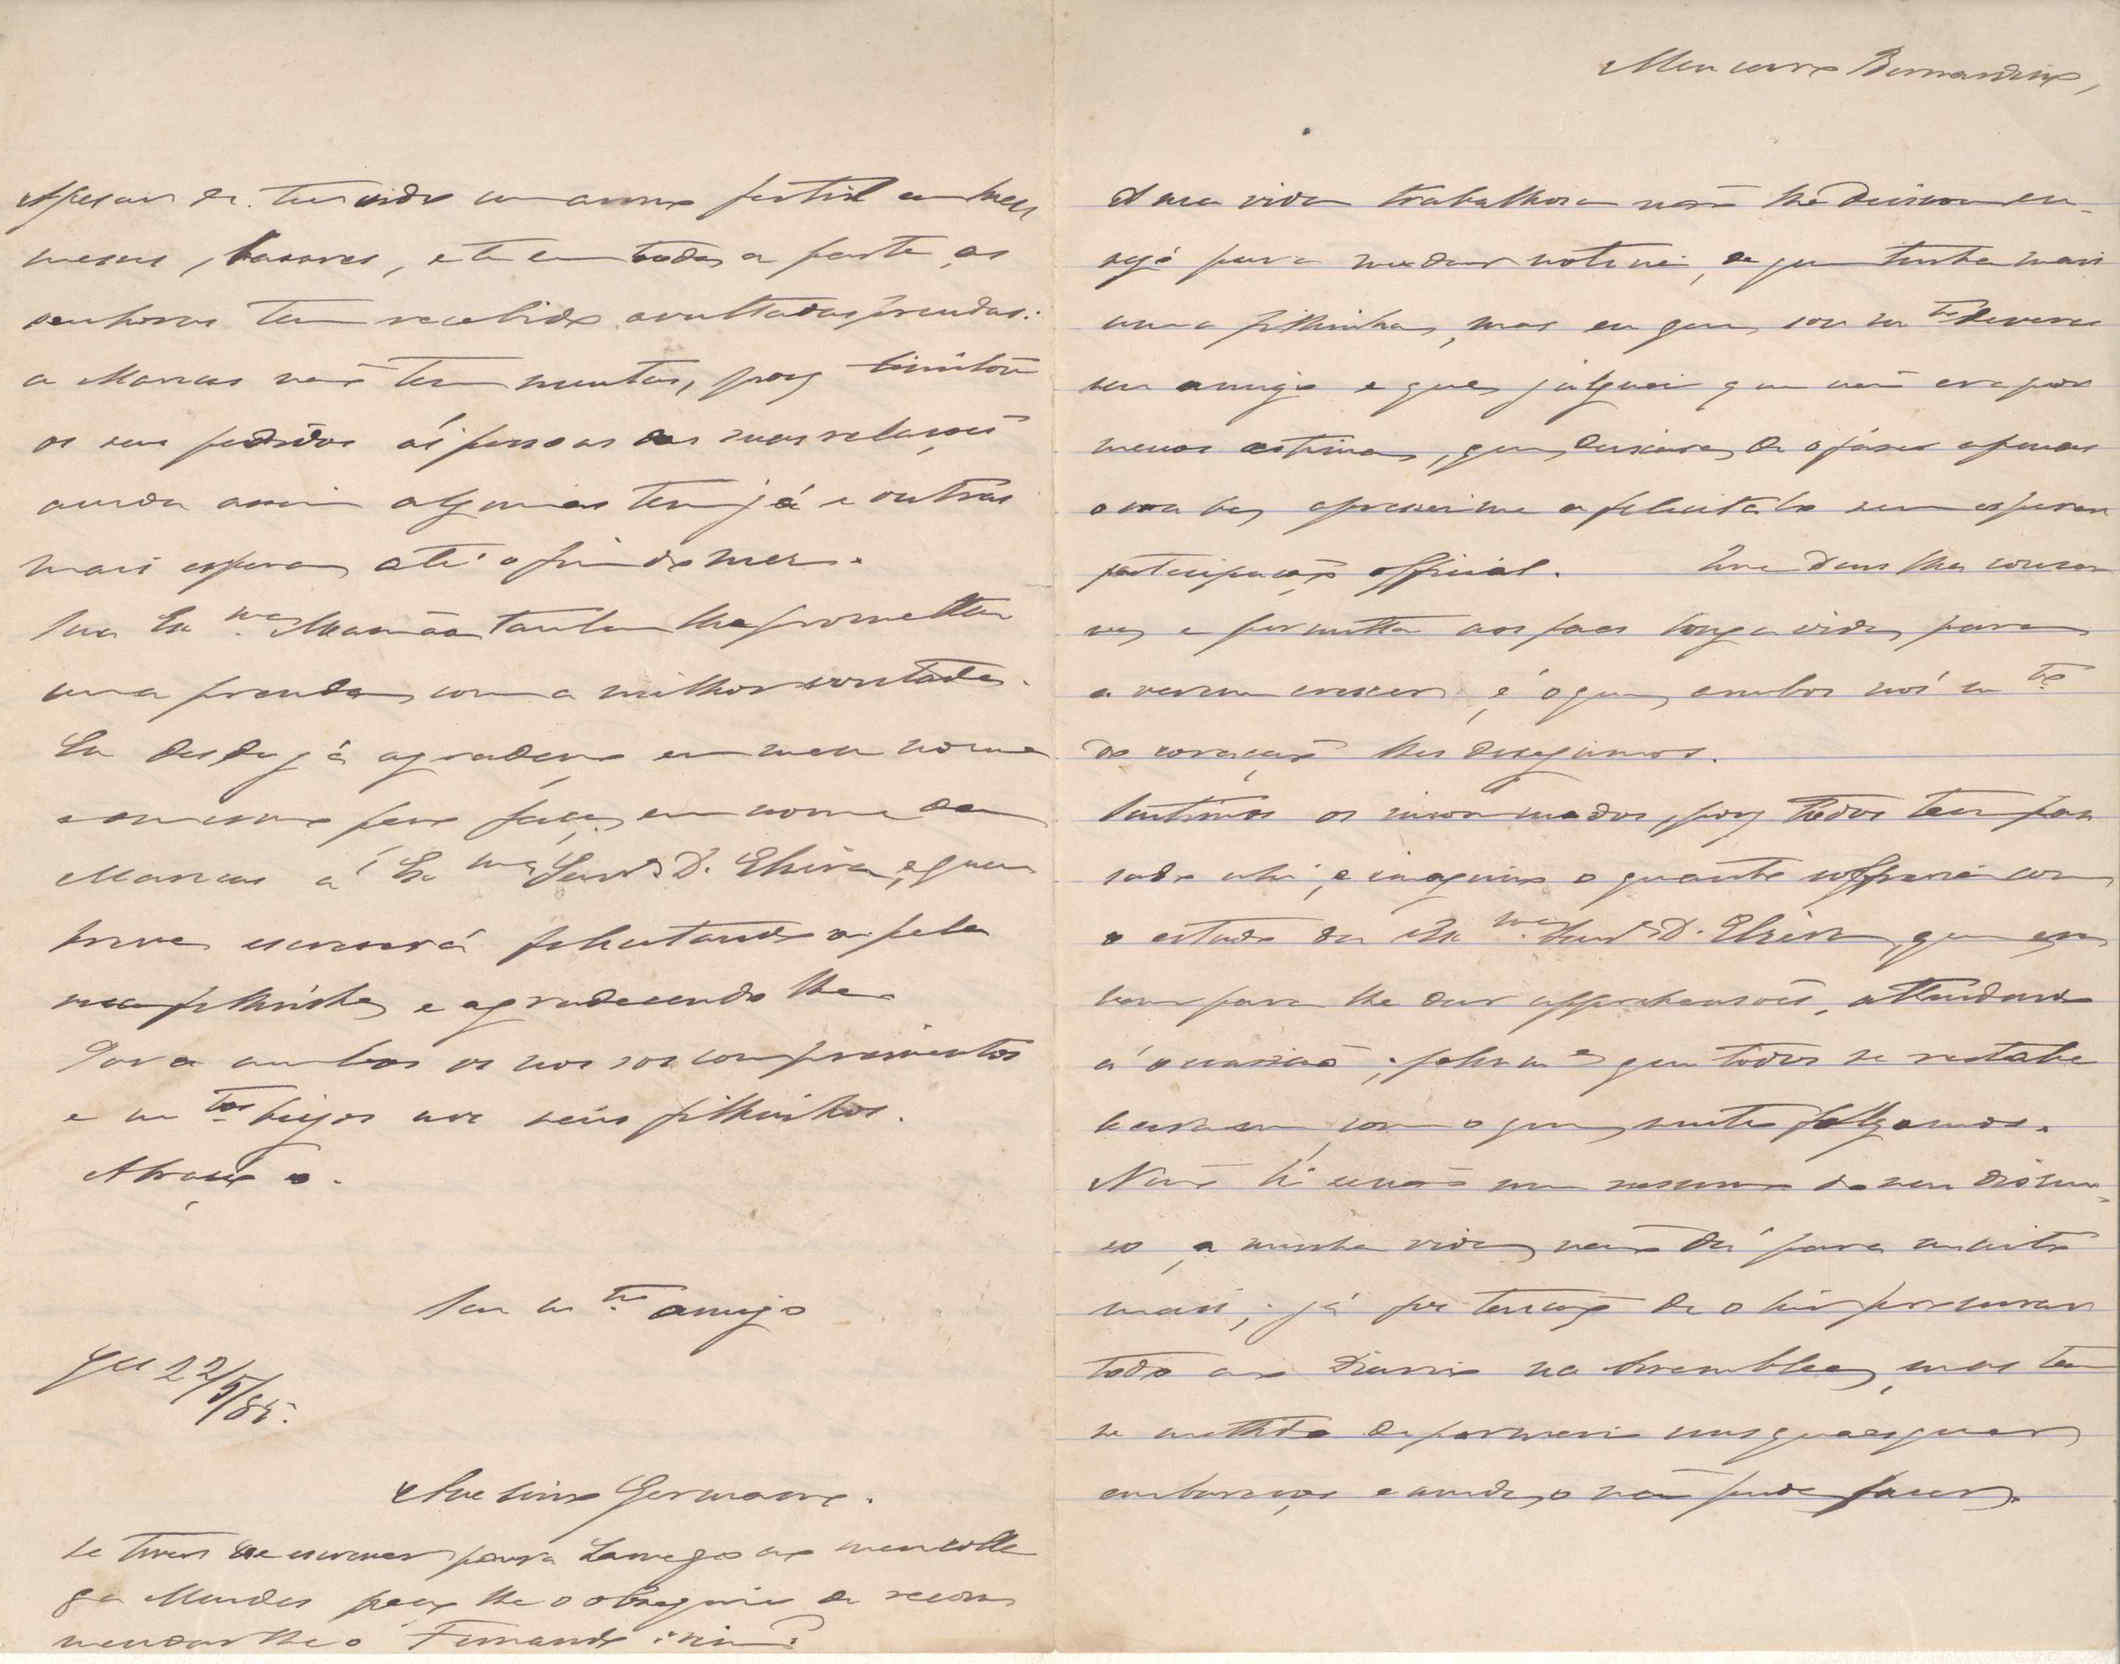 Meu caro Bernardino,
A sua vida trabalhosa não lhe deixou en-
sejo para me dar noticia, de que tinha mais
uma filhinha, mas eu que sou m.to deveras
seu amigo e que julguei que não era por
menos estima, que deixava de o fazer apenas
o soube, apressei-me a felicital-o sem esperar
participação official. Que Deus lha conser
ve, e permitta aos paes longa vida, para
a verem crescer, é o que ambos nós m.to
do coração lhes desejamos.
Sentimos os incommodos, por que todos tem pas
sado ahi, e imagino o quanto soffreria com
o estado da Ex.ma Snr.a D. Elzira, que era
bem para lhe dar apprehensões, attendendo
á occasião; felizm.e que todos se restabe
leceram, com o que muito folgamos.
Não li senão um resumo do seu discur-
so, a minha vida não dá para muito
mais; já fiz tenção de o hir procurar
todo ao Diario na Assemblea, mas tem
se mettido de permeio uns quaesquer
embaraços e ainda o não pude fazer.
Apesar de ter sido um anno fertil em kermesses,
bazares, etc em toda a parte, as
senhoras tem recebido avultadas prendas:
a Marcas não tem muitas, pois limitou
os seus pedidos ás pessoas das suas relações
ainda assim algumas tem já e outras
mais espera até o fim do mez.
Sua Ex.ma Mamãa tambem lhe prometteu
uma prenda com a melhor vontade.
Eu desde já agradeço em meu nome
e o mesmo peço faça, em nome da
á Ex.ma Snr.a D. Elzira, a quem
breve escreverá felicitando-a pela
filhinha e agradecendo lhe.
Para ambos os nossos comprimentos
e m.tos beijos aos seus filhinhos.
Abraça-o.
Seu m.to amigo
22/5/85.
Avelino Germano.
Se tiver de escrever para Lamego ao meu colle
ga Mendes peço lhe o obsequio de recom
mendar lhe o Fernando